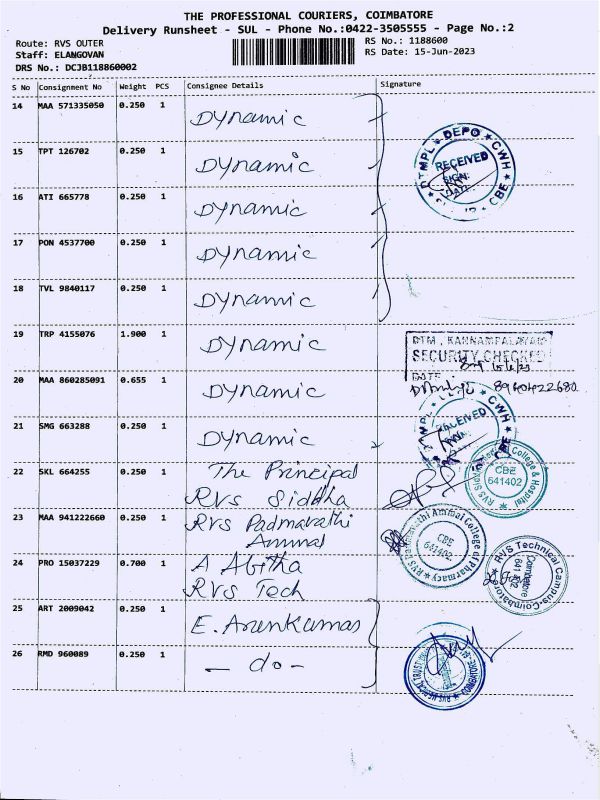 THE PROFESSIONAL COURIERS, COIMBATORE
Delivery Runsheet - SUL - Phone No.:0422-3505555 - Page No.:2
Route: RVS OUTER
RS No.: 1188600
Staff: ELANGOVAN
RS Date: 15-Jun-2023
DRS No.: DCJB118860002
S No Consignment No Weight PCS Consignee Details Signature
14 MAA 571335050 0.250 1 Dynamic
15 TPT 126702 0.250 1 Dynamic
16 ATI 665778 0.250 1 Dynamic
17 PON 4537700 0.250 1 Dynamic
18 TVL 9840117 0.250 1 Dynamic
19 TRP 4155076 1.900 1 Dynamic
20 MAA 860285091 0.655 1 Dynamic
21 SMG 663288 0.250 1 Dynamic
22 SKL 664255 0.250 1 The Principal
RVS Siddha
23 MAA 941222660 0.250 1 RVS Padmavathi
Ammal
24 PRO 15037229 0.700 1 A Abitha
RVS Tech
25 ART 2009042 0.250 1 E. Arunkumar
26 RMD 960089 0.250 1 - do -
DTMPL DEPO CWH CBE
RECEIVED
SIGN:
DATE:
DTM, KANNAMPALAYAM
SECURITY CHECKED
DATE
8940422680
CWH
RECEIVED
College & Hospital
CBE
641402
RVS Padmavathi Ammal College of Pharmacy
CBE
641402
RVS Technical Campus-Coimbatore
Coimbatore
641 402